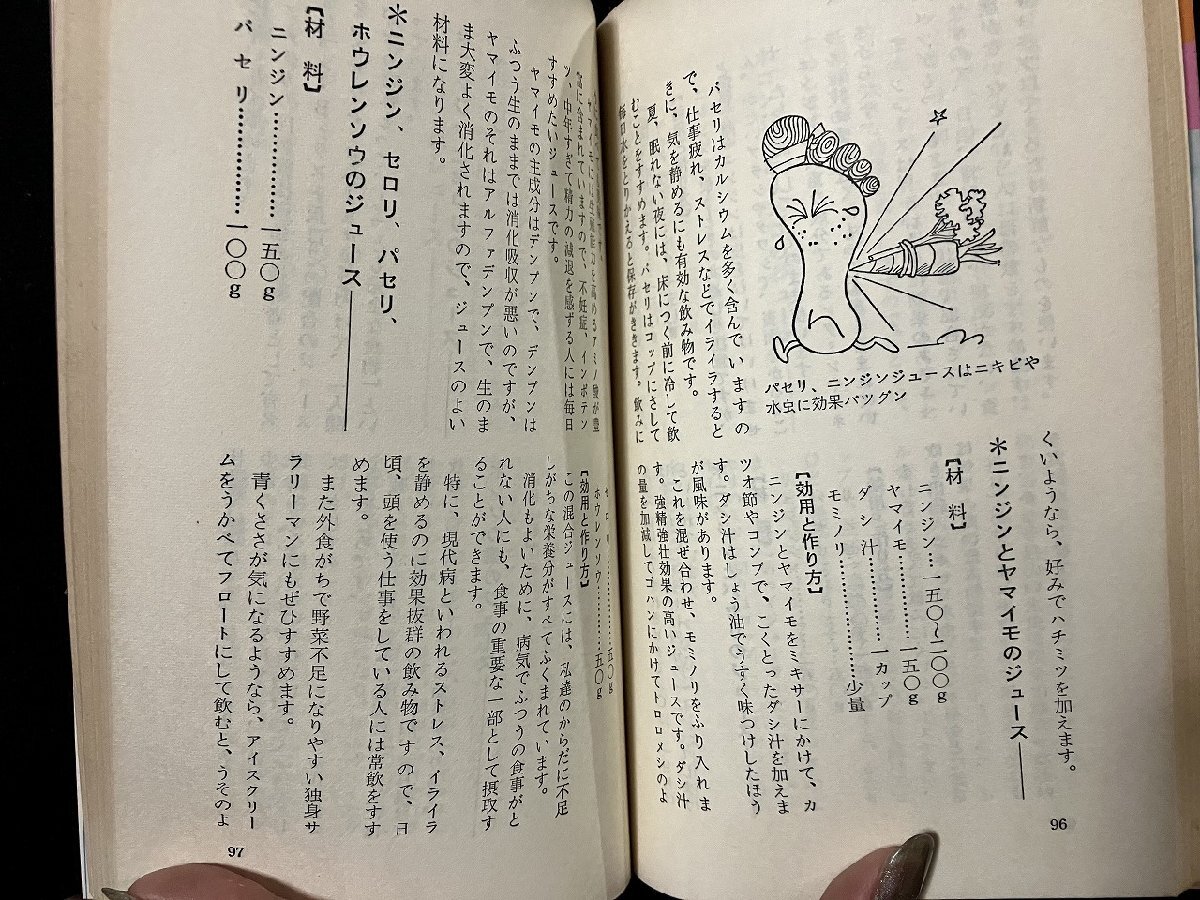 パセリはカルシウムを多く含んでいますの
で、仕事疲れ、ストレスなどでイライラすると
きに、気を静めるにも有効な飲み物です。
夏、眠れない夜には、床につく前に冷して飲
むことをすすめます。パセリはコップにさして
毎日水をとりかえると保存がききます。飲みに
パセリ、ニンジンジュースはニキビや
水虫に効果バツグン
くいようなら、好みでハチミツを加えます。
＊ニンジンとヤマイモのジュース――
【材　料】
ニンジン…一五〇〜二〇〇g
ヤマイモ……………一五〇g
ダシ汁……………一カップ
モミノリ……………少量
【効用と作り方】
ニンジンとヤマイモをミキサーにかけて、カ
ツオ節やコンブで、こくとったダシ汁を加えま
す。ダシ汁はしょう油でうすく味つけしたほう
が風味があります。
これを混ぜ合わせ、モミノリをふり入れま
す。強精強壮効果の高いジュースです。ダシ汁
の量を加減してゴハンにかけてトロロメシのよ
96
ヤマイモには生殖能力を高めるアミノ酸が豊
富に含まれていますので、不妊症、インポテン
ツ、中年すぎて精力の減退を感ずる人には毎日
すすめたいジュースです。
ヤマイモの主成分はデンプンで、デンプンは
ふつう生のままでは消化吸収が悪いのですが、
ヤマイモのそれはアルファデンプンで、生のま
ま大変よく消化されますので、ジュースのよい
材料になります。
＊ニンジン、セロリ、パセリ、
ホウレンソウのジュース――
【材　料】
ニンジン………………一五〇g
パセリ………………一〇〇g
セロリ……………五〇g
ホウレンソウ…………五〇g
【効用と作り方】
この混合ジュースには、私達のからだに不足
しがちな栄養分がすべてふくまれています。
消化もよいために、病気でふつうの食事がと
れない人にも、食事の重要な一部として摂取す
ることができます。
特に、現代病といわれるストレス、イライラ
を静めるのに効果抜群の飲み物ですので、日
頃、頭を使う仕事をしている人には常飲をすす
めます。
また外食がちで野菜不足になりやすい独身サ
ラリーマンにもぜひすすめます。
青くささが気になるようなら、アイスクリー
ムをうかべてフロートにして飲むと、うそのよ
97